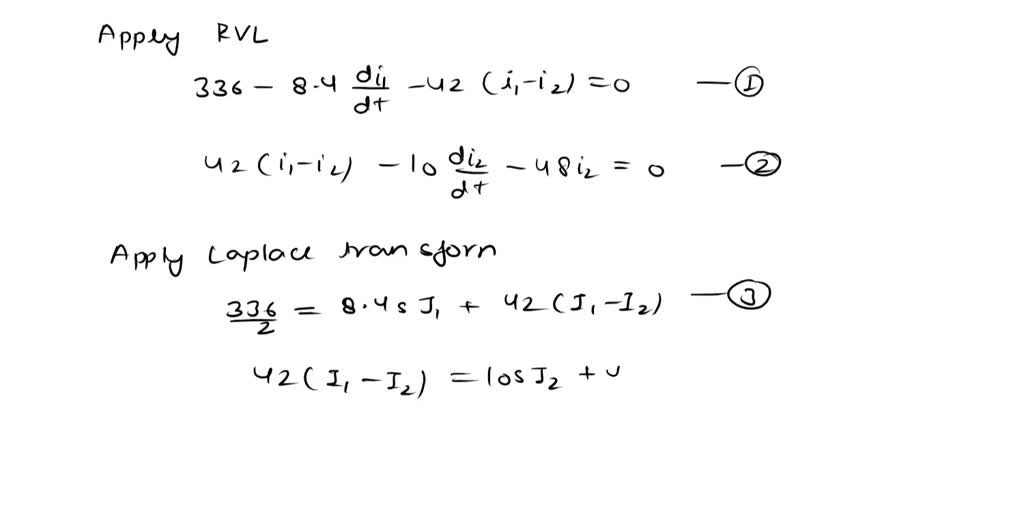 Apply KVL
336 - 8.4 di1/dt - 42 (i1-i2) = 0 —①
42 (i1-i2) - 10 di2/dt - 48 i2 = 0 —②
Apply Laplace transforn
336/2 = 8.4s I1 + 42 (I1-I2) —③
42 (I1-I2) = 10s I2 +